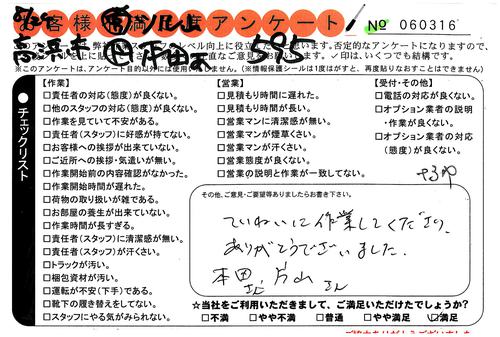 お客様満足度アンケート
№ 060316
595
※このアンケートは、アンケート目的以外には使用いたしません。(※情報保護シールは1度はがすと、再度貼りなおすことはできません)
●チェックリスト
【作業】
□責任者の対応(態度)が良くない。
□他のスタッフの対応(態度)が良くない。
□作業を見ていて不安がある。
□責任者(スタッフ)に好感が持てない。
□お客様への挨拶が出来ていない。
□ご近所への挨拶・気遣いが無い。
□作業開始前の内容確認がなかった。
□作業開始時間が遅れた。
□荷物の取り扱いが雑である。
□お部屋の養生が出来ていない。
□作業時間が長すぎる。
□責任者(スタッフ)に清潔感が無い。
□責任者(スタッフ)が汗くさい。
□トラックが汚い。
□梱包資材が汚い。
□運転が不安(下手)である。
□靴下の履き替えをしてない。
□スタッフにやる気がみられない。
【営業】
□見積もり時間に遅れた。
□見積もり時間が長い。
□営業マンに清潔感が無い。
□営業マンが煙草くさい。
□営業マンが汗くさい。
□営業態度が良くない。
□営業の説明と作業が一致してない。
【受付・その他】
□電話の対応が良くない。
□オプション業者の説明・作業が良くない。
□オプション業者の対応(態度)が良くない。
その他、ご意見・ご要望等ありましたらお書き下さい。
ていねいに作業してくださり、
ありがとうございました。
本田さん 片山さん
☆当社をご利用いただきまして、ご満足いただけたでしょうか?
□不満 □やや不満 □普通 □やや満足 ☑満足